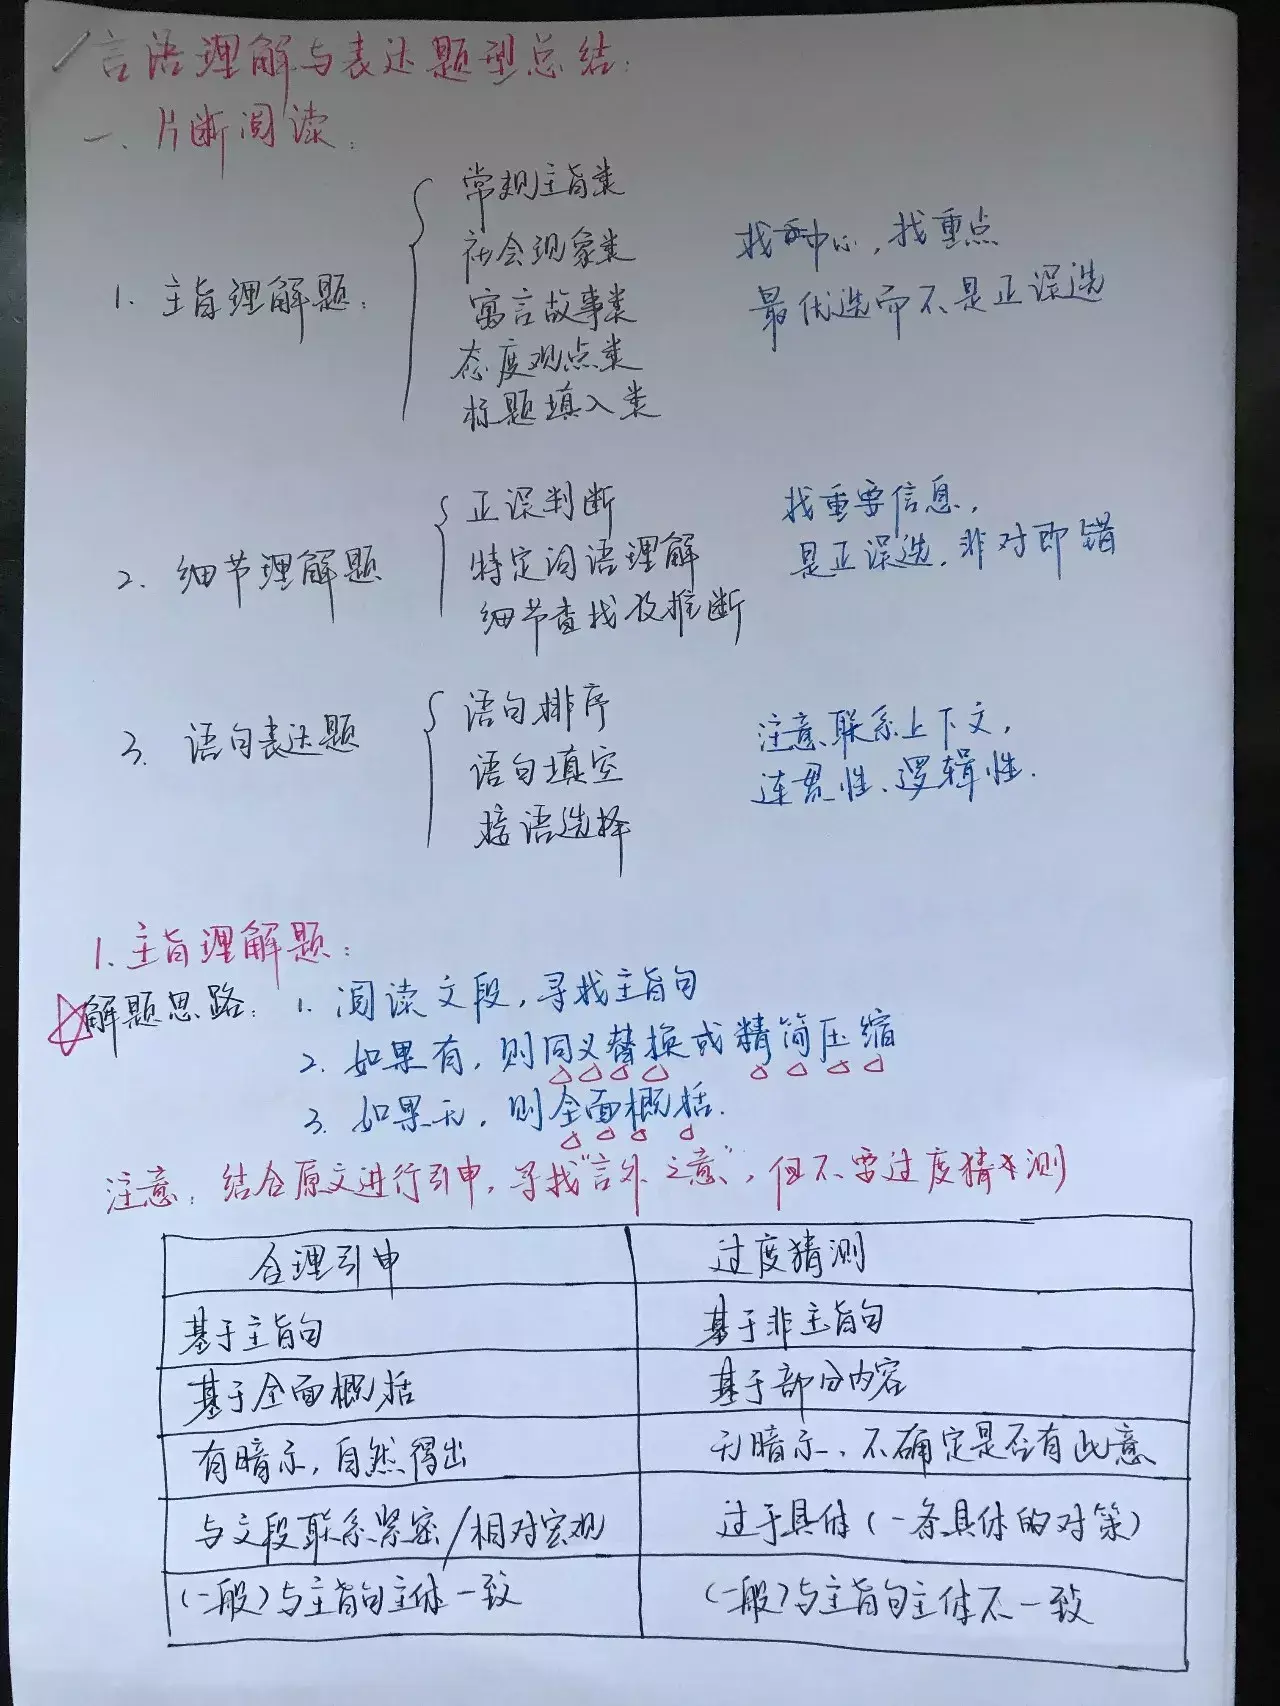 言语理解与表达题型总结:
一、片断阅读:
1. 主旨理解题:
常规主旨类
社会现象类
寓言故事类
态度观点类
标题填入类
找中心,找重点
最优选而不是正误选
2. 细节理解题
正误判断
特定词语理解
细节查找及推断
找重要信息,
是正误选,非对即错
3. 语句表达题
语句排序
语句填空
接语选择
注意联系上下文,
连贯性、逻辑性.
1. 主旨理解题:
解题思路: 1. 阅读文段,寻找主旨句
2. 如果有,则同义替换或精简压缩
3. 如果无,则全面概括.
注意:结合原文进行引申,寻找"言外之意",但不要过度猜测
合理引申 过度猜测
基于主旨句 基于非主旨句
基于全面概括 基于部分内容
有暗示,自然得出 无暗示、不确定是否有此意
与文段联系紧密/相对宏观 过于具体(一条具体的对策)
(一般)与主旨句主体一致 (一般)与主旨句主体不一致